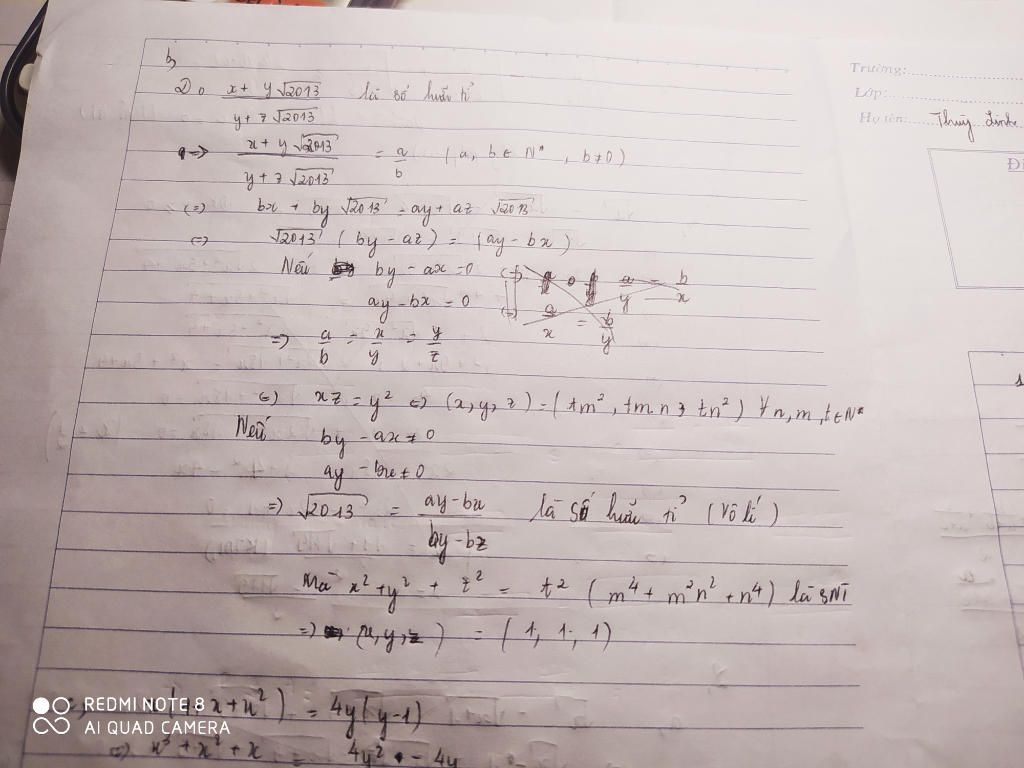 b,
Do x + y √2013 / y + z √2013 là số hữu tỉ
=> x + y √2013 / y + z √2013 = a/b (a, b ∈ N*, b ≠ 0)
(=) bx + by √2013 = ay + az √2013
(=) √2013 (by - az) = (ay - bx)
Nếu by - ax = 0
ay - bx = 0
=> a/b = x/y = y/z
(=) xz = y² (=) (x, y, z) = (tm², tm.n, tn²) ∀ n, m, t ∈ N*
Nếu by - ax ≠ 0
ay - bx ≠ 0
=> √2013 = ay - bx / by - bz là số hữu tỉ (Vô lí)
Mà x² + y² + z² = t² (m⁴ + m²n² + n⁴) là SNT
=> (x, y, z) = (1, 1, 1)
x + x²) = 4y(y-1)
(=) x³ + x² + x = 4y² - 4y
Trường:
Lớp:
Họ tên: Thùy Linh
Đ
REDMI NOTE 8
AI QUAD CAMERA